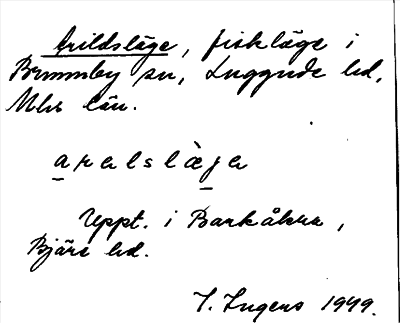 Arildsläge, fiskläge i
Brunnby sn, Luggude hd,
Mlhs län.
arelslàja
Uppt. i Barkåkra,
Bjäre hd.
I. Ingers 1949.